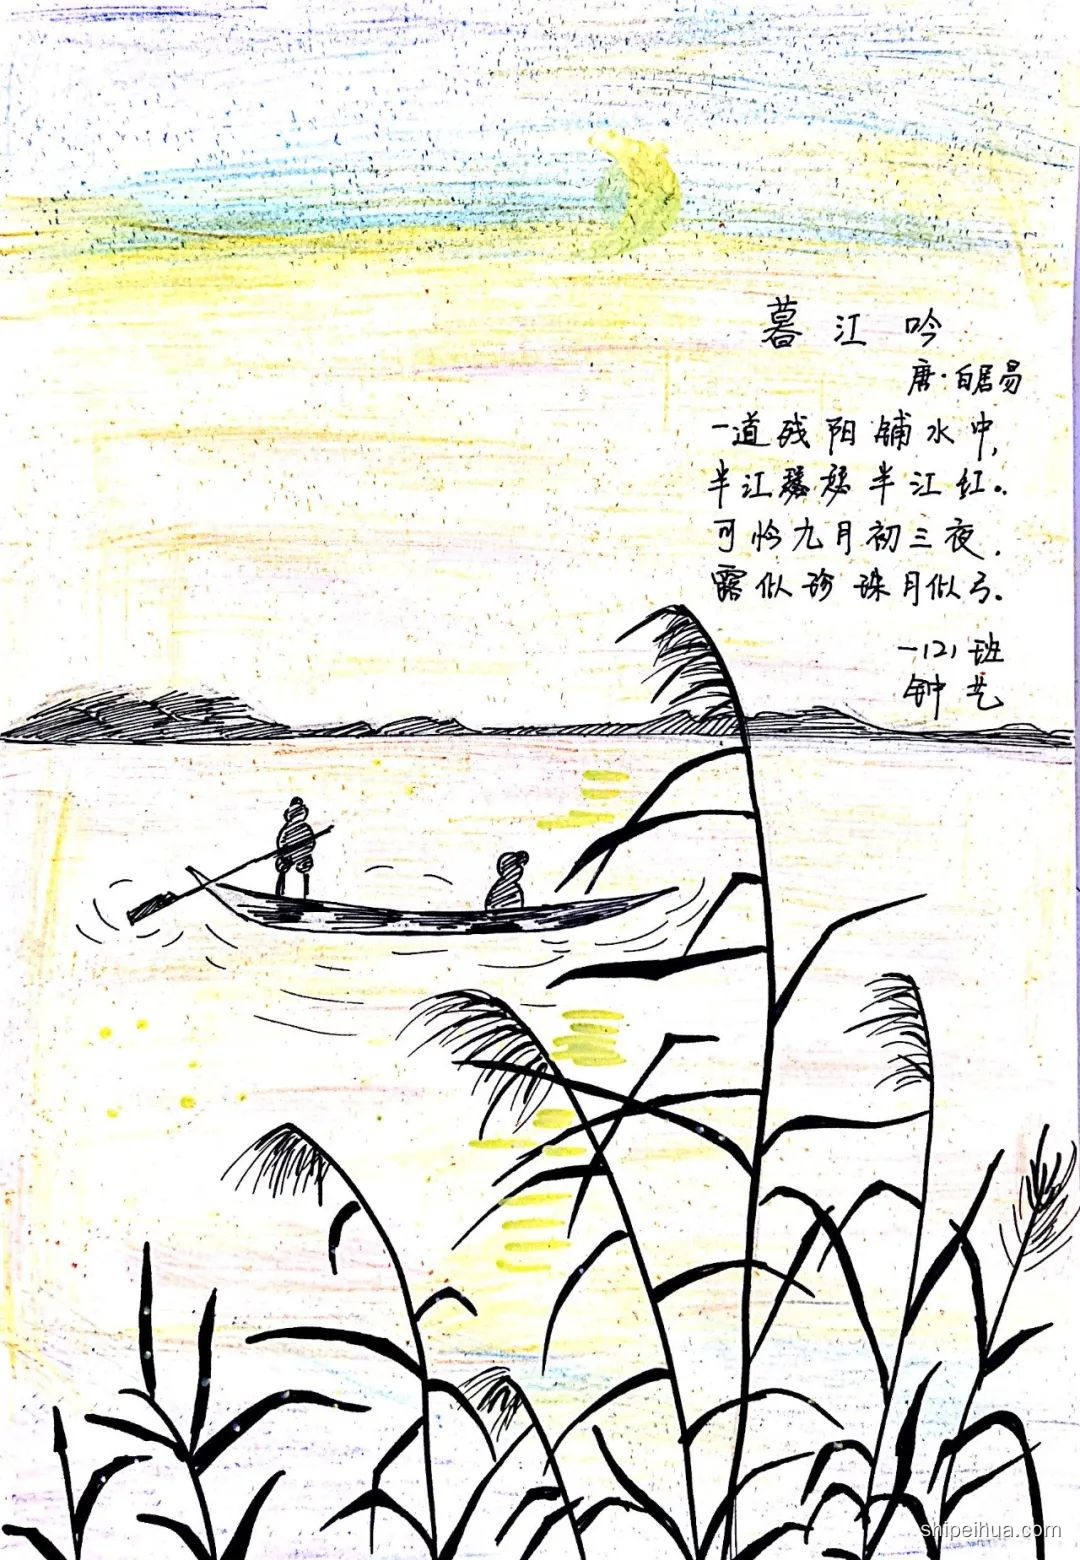 暮江吟
唐·白居易
一道残阳铺水中,
半江瑟瑟半江红。
可怜九月初三夜,
露似珍珠月似弓。
一(2)班
钟艺
shipeihua.com